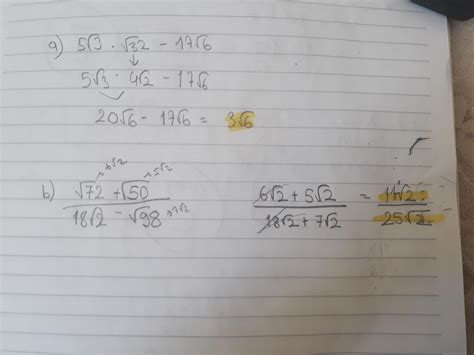 a) 5√3 · √32 - 17√6
↓
5√3 · 4√2 - 17√6
20√6 - 17√6 = 3√6
→6√2 →5√2
b) √72 + √50 / 18√2 - √98 →7√2
6√2 + 5√2 / 18√2 + 7√2 = 11√2 / 25√2